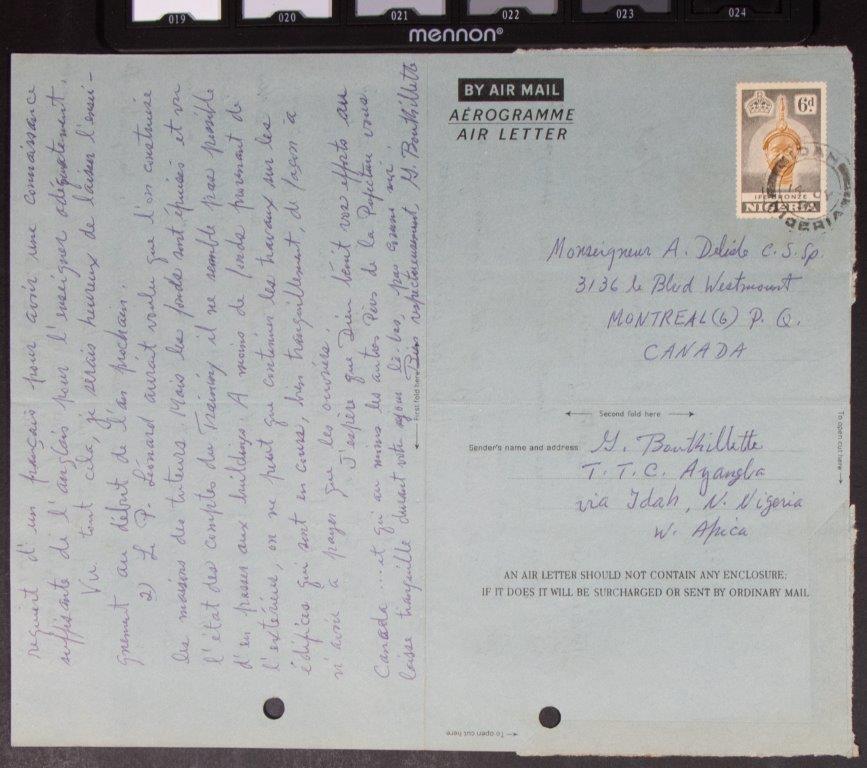 019 020 021 022 023 024
mennon®
BY AIR MAIL
AÉROGRAMME
AIR LETTER
6d
IFE BRONZE
NIGERIA
Monseigneur A. Delisle C.S.Sp.
3136 le Blvd Westmount
MONTREAL (6) P. Q.
CANADA
First fold here
Second fold here
To open cut here
Sender's name and address:
G. Bouthillette
T. T. C. Ayangba
via Idah, N. Nigeria
W. Africa
AN AIR LETTER SHOULD NOT CONTAIN ANY ENCLOSURE;
IF IT DOES IT WILL BE SURCHARGED OR SENT BY ORDINARY MAIL
To open cut here
requiert d'un français pour avoir une connaissance
suffisante de l'anglais pour l'enseigner adéquatement.
Vu tout cela, je serais heureux de laisser l'ensei-
gnement au début de l'an prochain.
2) Le P. Léonard aurait voulu que l'on construise
les maisons des tuteurs. Mais les fonds sont épuisés et vu
l'état des comptes du Training, il ne semble pas possible
d'en passer aux buildings. A moins de fonds provenant de
l'extérieur, on ne peut que continuer les travaux sur les
édifices qui sont en cours, bien tranquillement, de façon à
n'avoir à payer que les ouvriers.
J'espère que Dieu bénit vos efforts au
Canada ... et qu'au moins les autres Pères de la Préfecture vous
laisse tranquille durant votre séjour là-bas, pas comme moi!
Bien respectueusement, G. Bouthillette